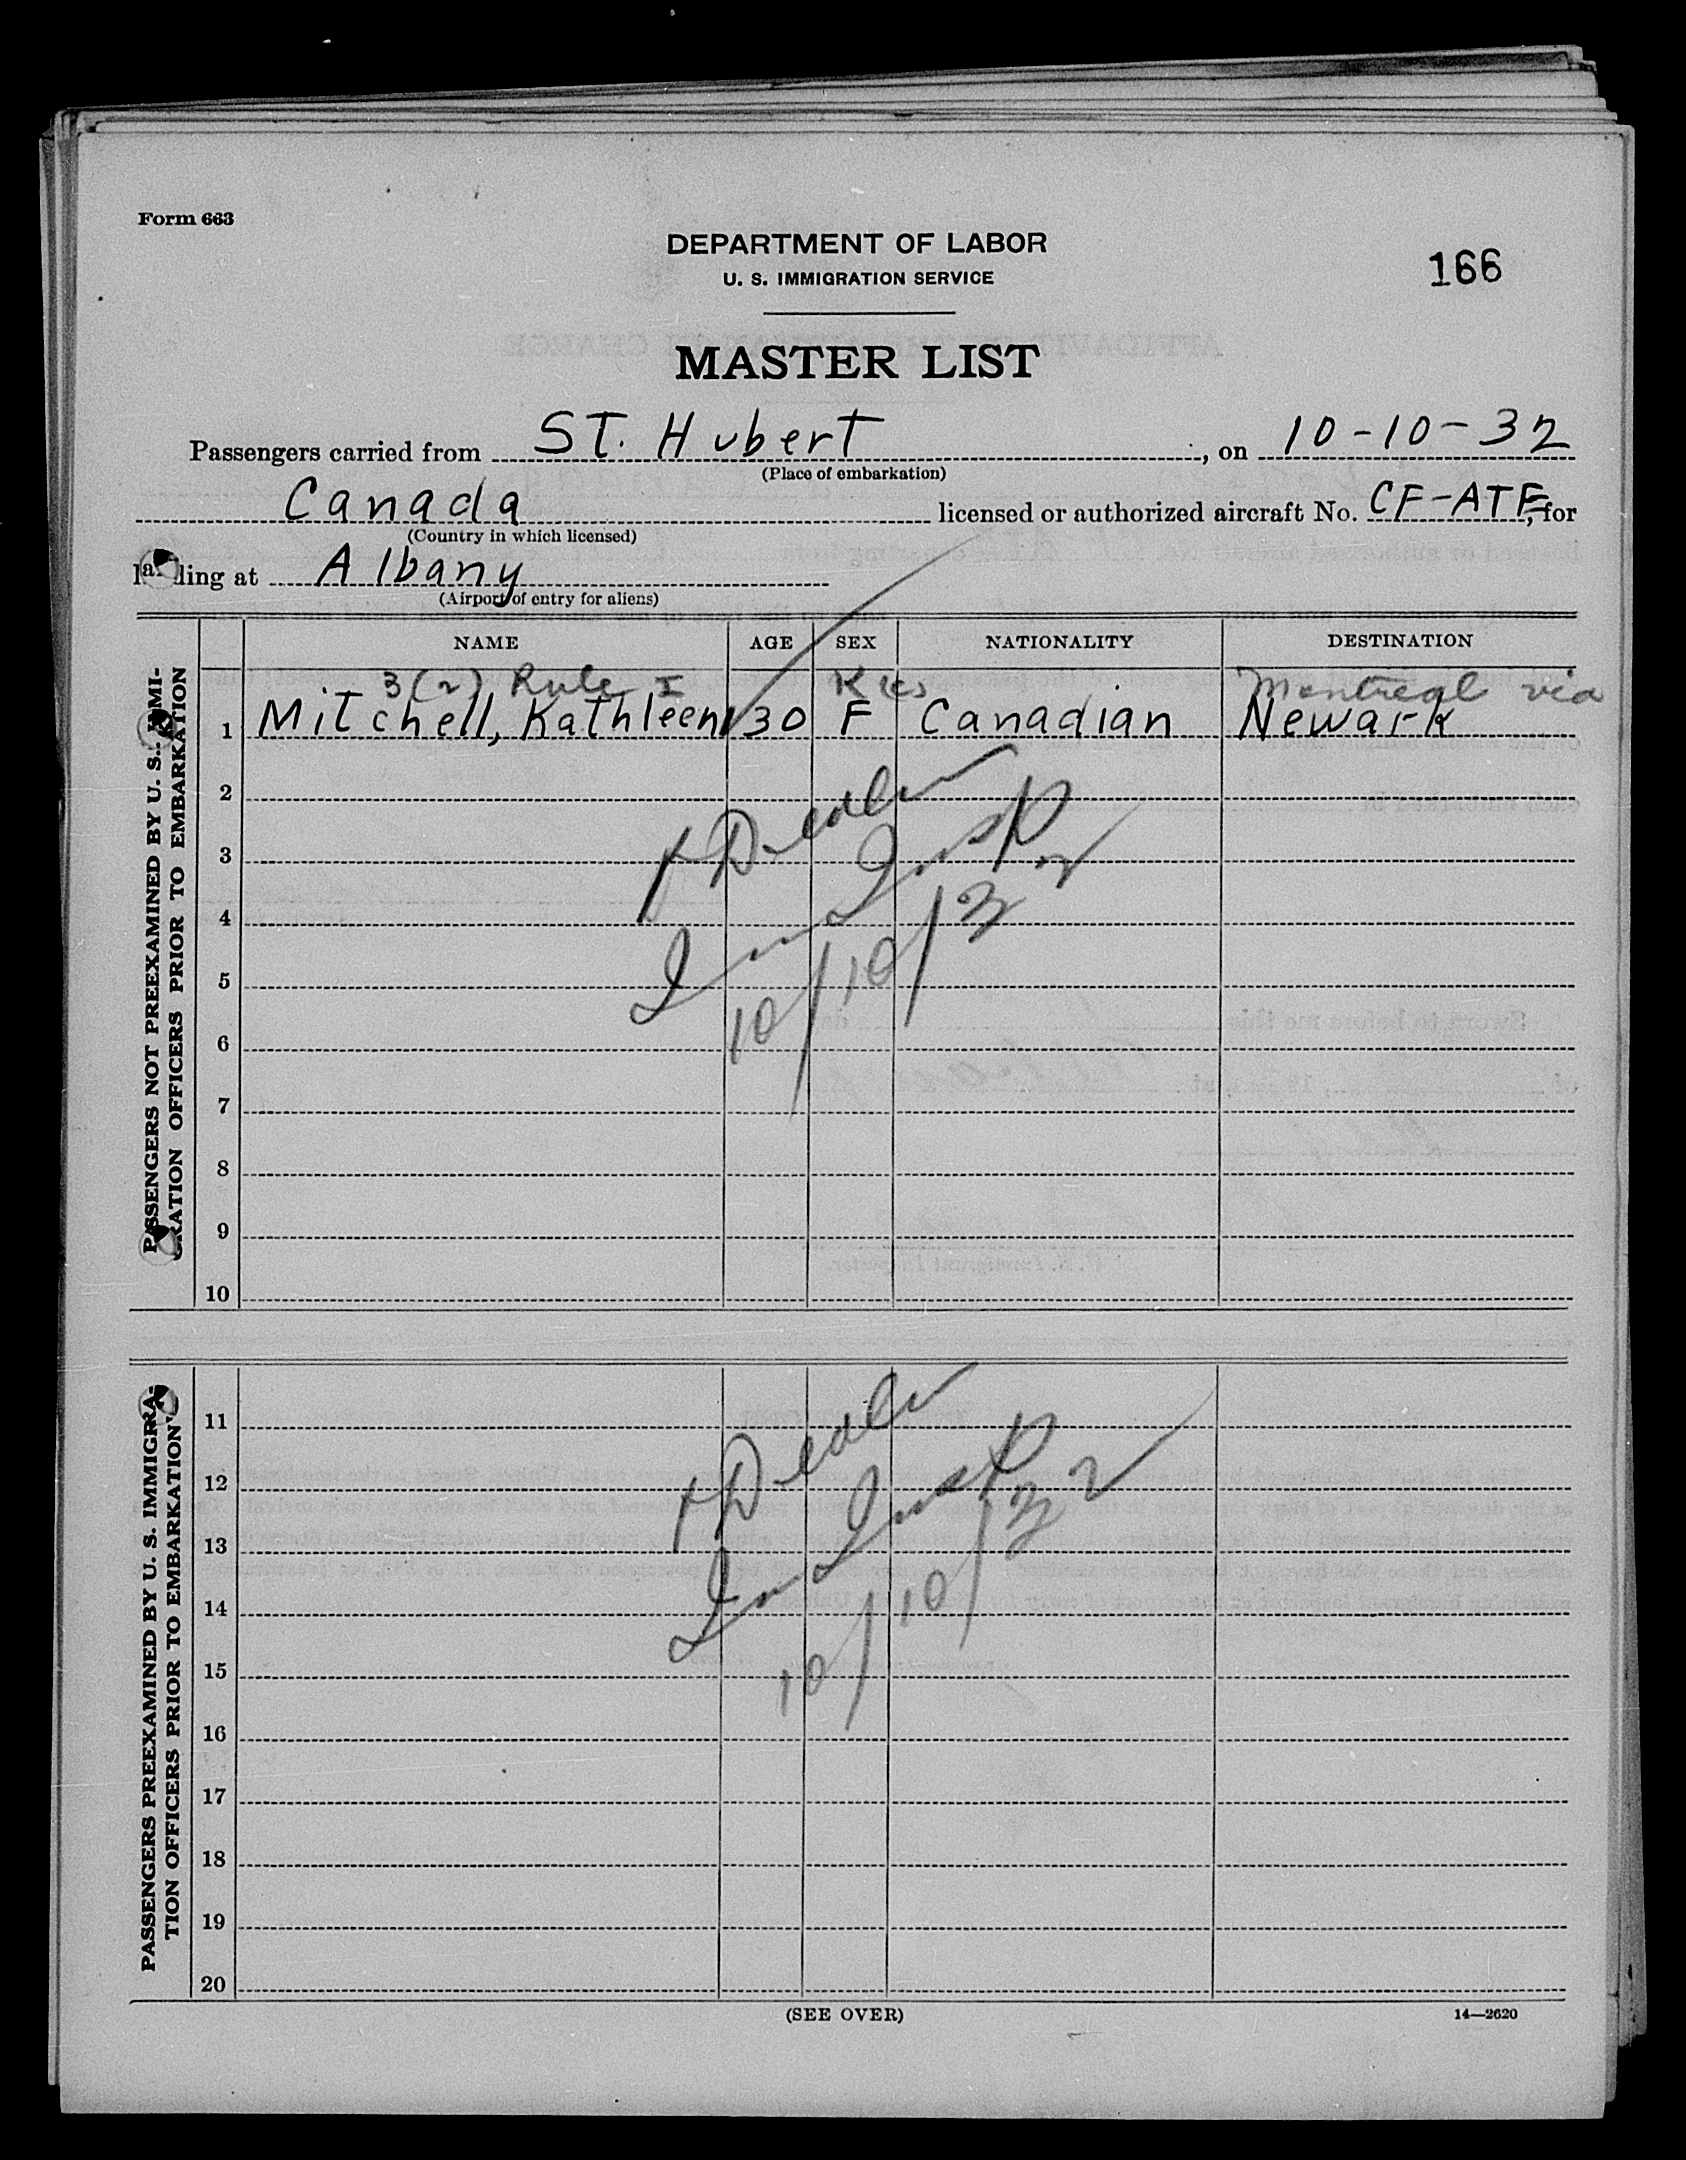 Form 663
DEPARTMENT OF LABOR
U. S. IMMIGRATION SERVICE
166
MASTER LIST
Passengers carried from ST. Hubert, on 10-10-32
(Place of embarkation)
Canada licensed or authorized aircraft No. CF-ATF, for
(Country in which licensed)
landing at Albany
(Airport of entry for aliens)
NAME AGE SEX NATIONALITY DESTINATION
3(2) Rule I Montreal via
1 Mitchell, Kathleen 30 F Canadian Newark
2
3
4
Im Insp
5
10/10/32
6
7
8
9
10
PASSENGERS NOT PREEXAMINED BY U. S. IMMI-
GRATION OFFICERS PRIOR TO EMBARKATION
11
12
13
Im Insp
14
10/10/32
15
16
17
18
19
20
PASSENGERS PREEXAMINED BY U. S. IMMIGRA-
TION OFFICERS PRIOR TO EMBARKATION
(SEE OVER)
14—2620